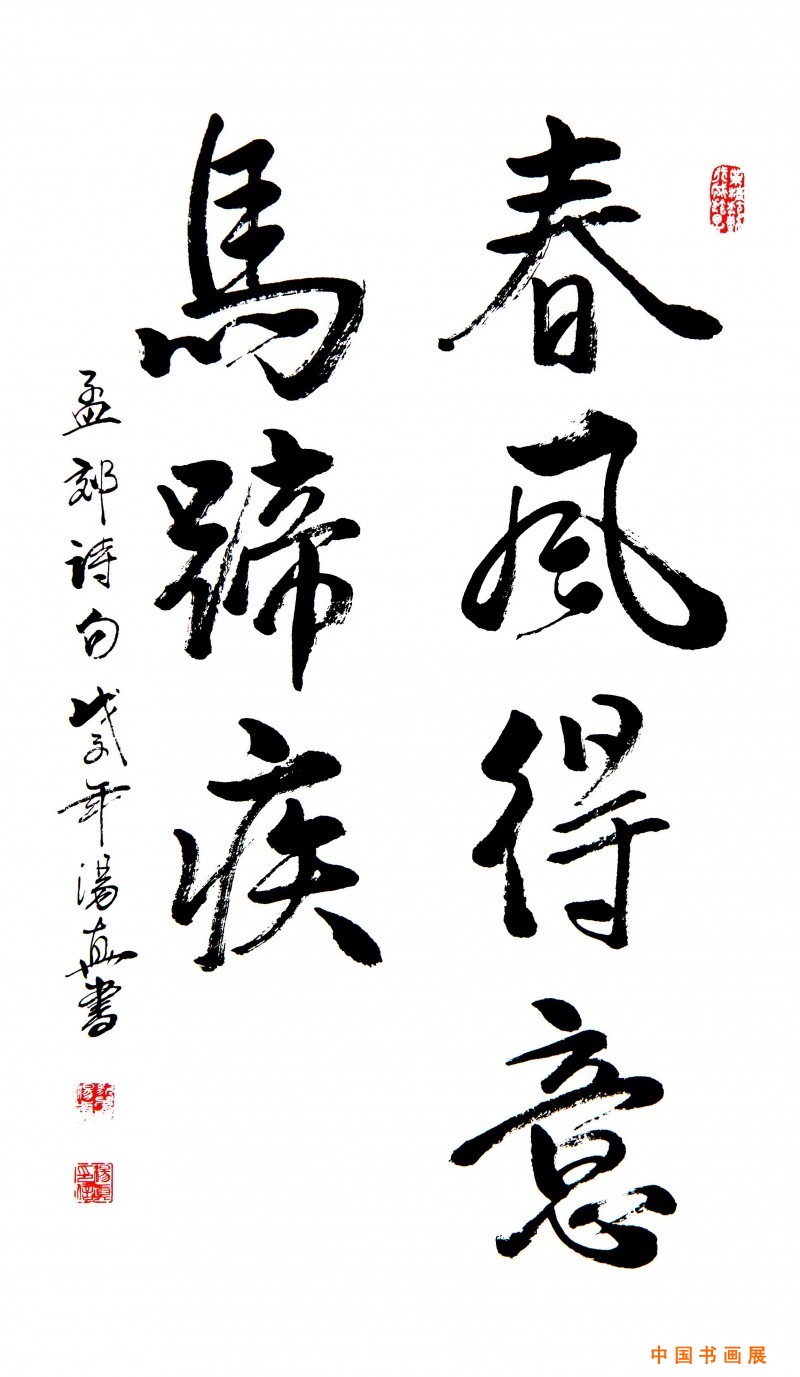 春風得意
馬蹄疾
孟郊诗句戊子年湯真書
中国书画展